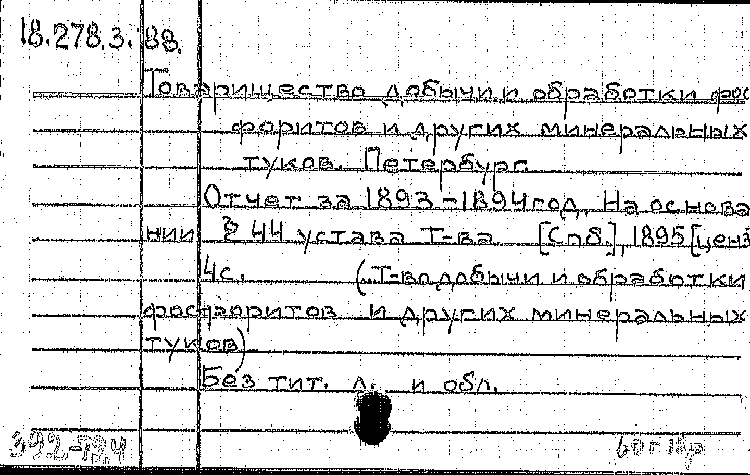 18.278.3.88.
Товарищество добычи и обработки фос
форитов и других минеральных
туков. Петербург.
Отчет за 1893-1894 год. На основа
нии § 44 устава Т-ва [Спб.], 1895 [ценз
4с. (...Т-во добычи и обработки
фосфоритов и других минеральных
туков)
Без тит. л. и обл.
392-94